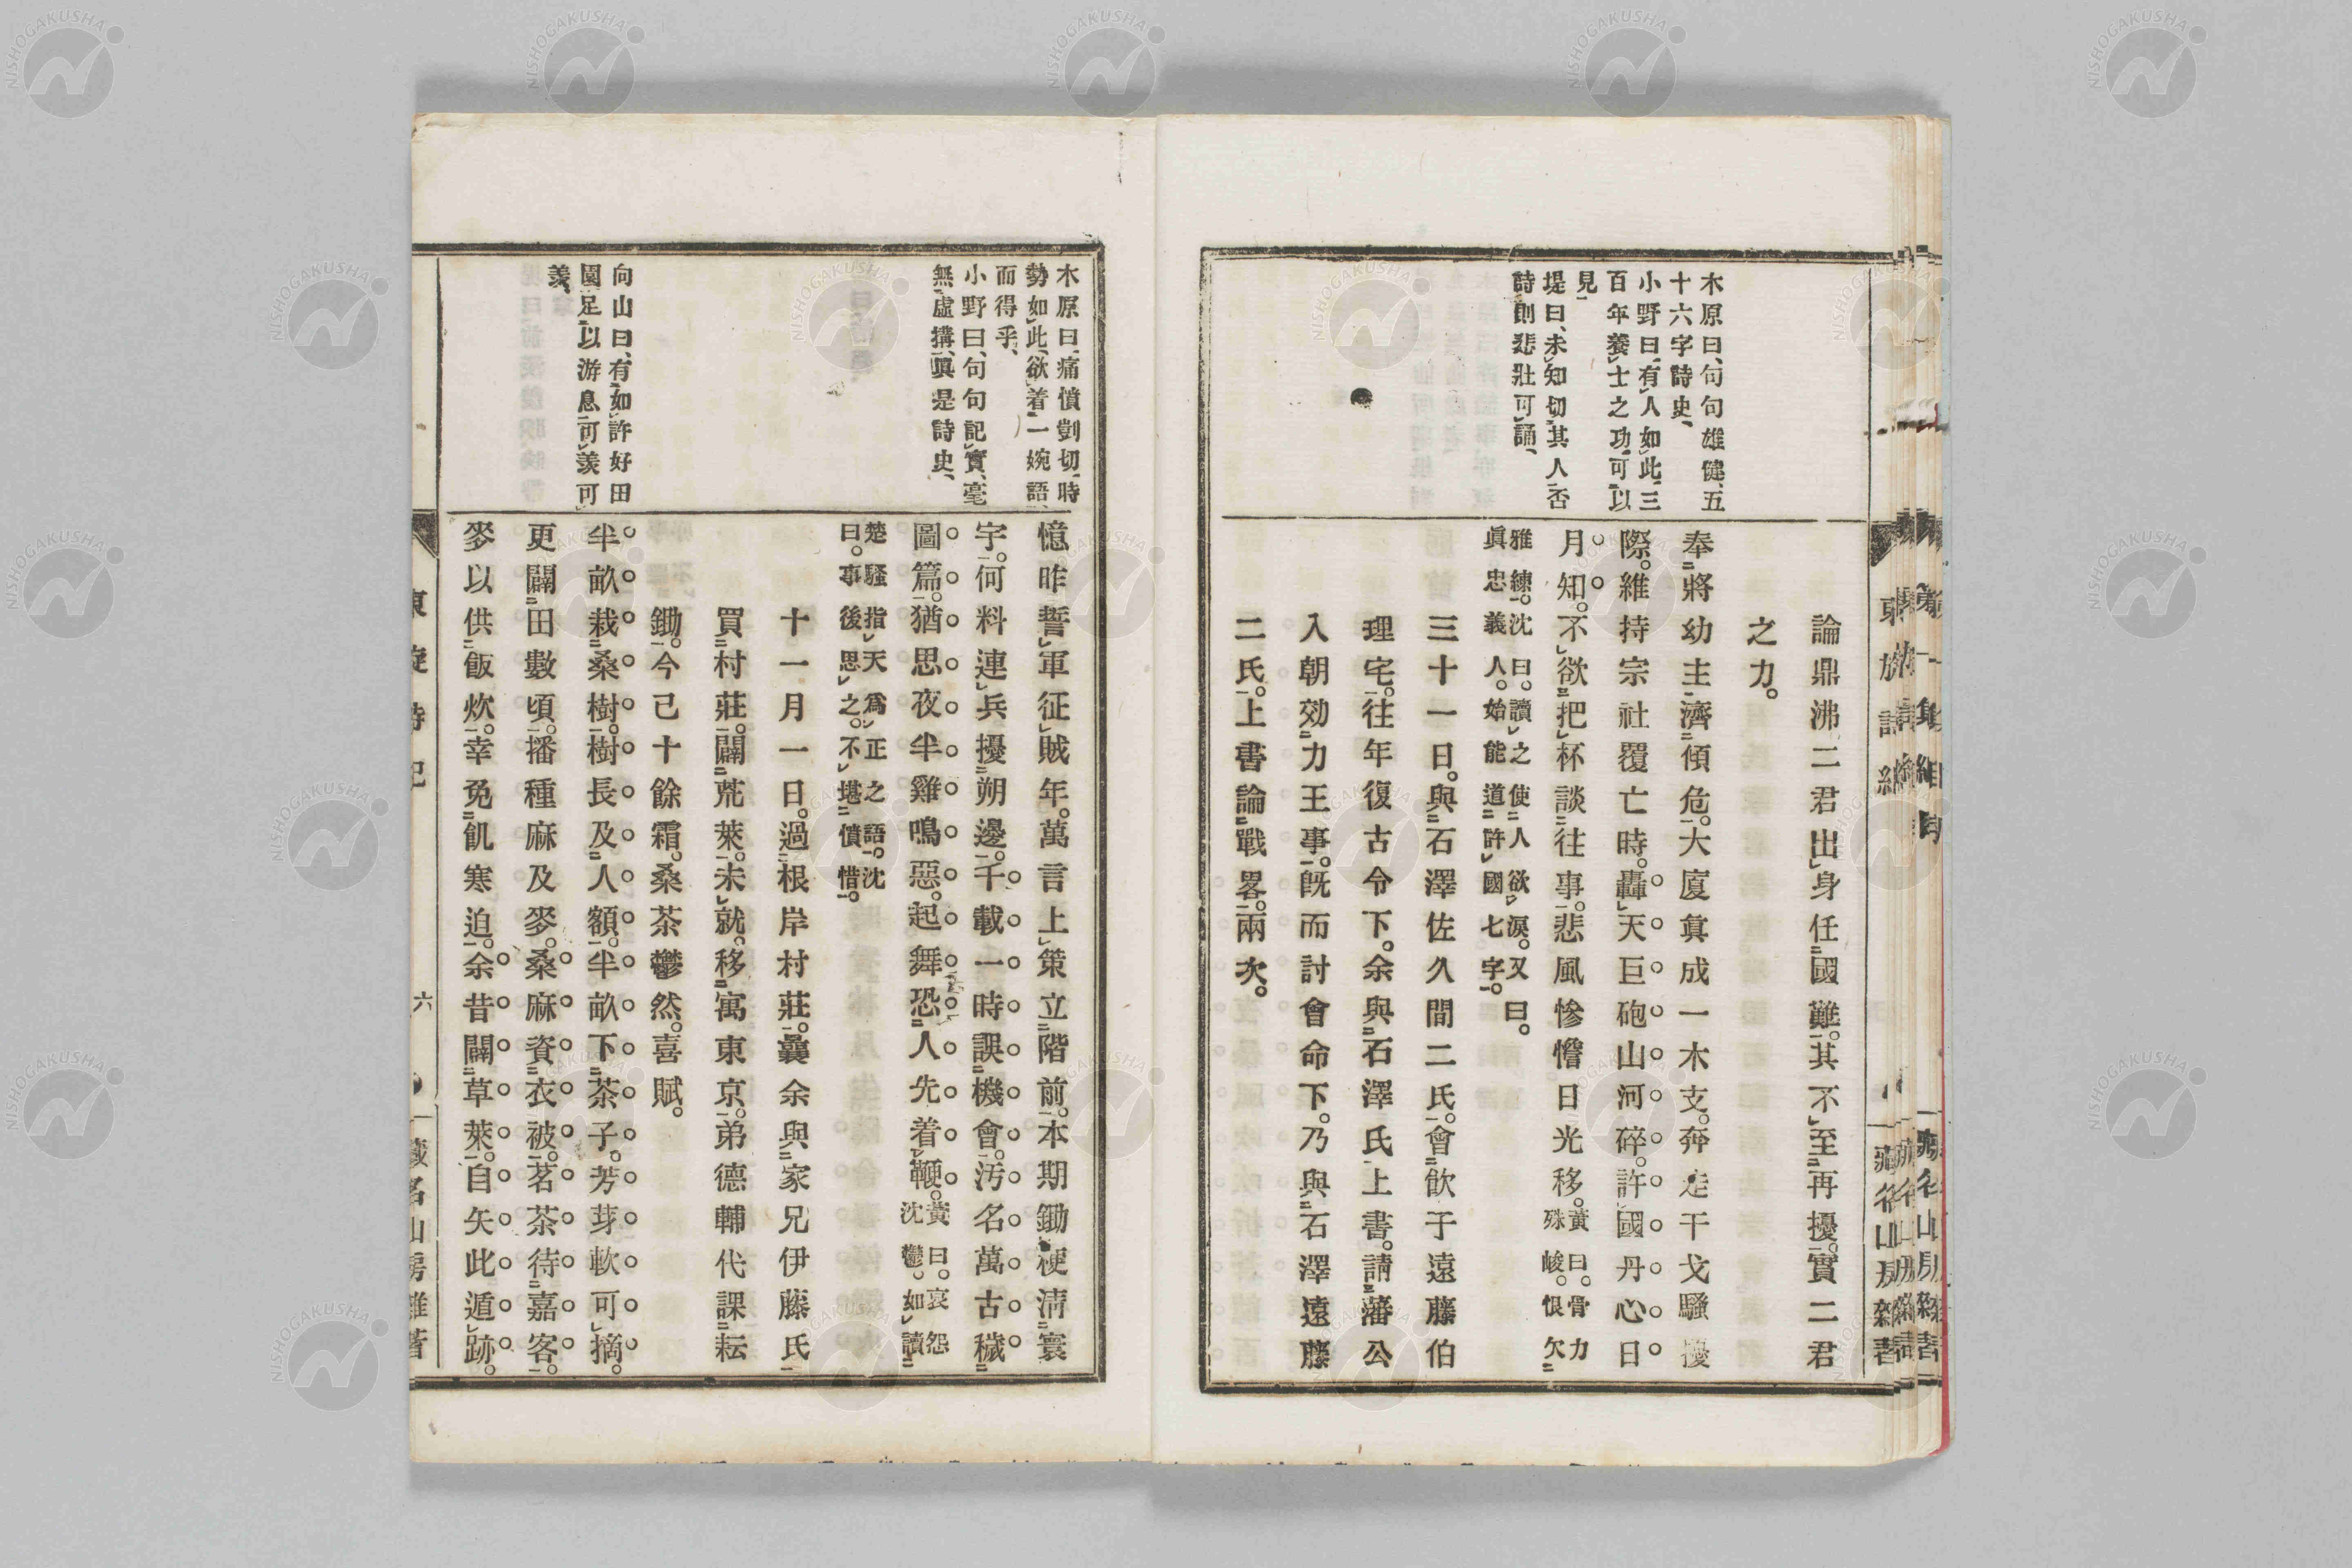 木原曰、句句雄健、五
十六字詩史、
小野曰、有人如此、三
百年養士之功、可以
見
堤曰、未知切其人否
詩則悲壯可誦、
論鼎沸二君出身任國難。其不至再擾。實二君
之力。
奉將幼主濟傾危。大廈眞成一木支。奔走干戈騷擾
際。維持宗社覆亡時。轟天巨砲山河碎。許國丹心日
月知。不欲把杯談往事。悲風慘憺日光移。黃曰。骨力
殊峻。恨欠
雅練。沈曰。讀之使人欲淚。又曰。
眞忠義人。始能道許國七字。
三十一日。與石澤佐久間二氏。會飮于遠藤伯
理宅。往年復古令下。余與石澤氏上書。請藩公
入朝効力王事。旣而討會命下。乃與石澤遠藤
二氏。上書論戰畧。兩次。
木原曰、痛憤剴切、時
勢如此、欲着一婉語、
而得乎、
小野曰、句句記實、毫
無虛搆、眞是詩史、
向山曰、有如許好田
園、足以游息、可羨可
羨、
憶昨誓軍征賊年。萬言上策立階前。本期鋤梗淸寰
宇。何料連兵擾朔邊。千載一時誤機會。汚名萬古穢
圖篇。猶思夜半雞鳴惡。起舞恐人先着鞭。黃曰。哀怨
沈鬱。如讀
楚騷指天爲正之語。沈
曰。事後思之。不堪憤惜。
十一月一日。過根岸村莊。曩余與家兄伊藤氏
買村莊。闢荒萊。未就。移寓東京。弟德輔代課耘
鋤。今已十餘霜。桑茶鬱然。喜賦。
半畝栽桑樹。樹長及人額。半畝下茶子。芳芽軟可摘。
更闢田數頃。播種麻及麥。桑麻資衣被。茗茶待嘉客。
麥以供飯炊。幸免飢寒迫。余昔闢草萊。自矢此遁跡。
六